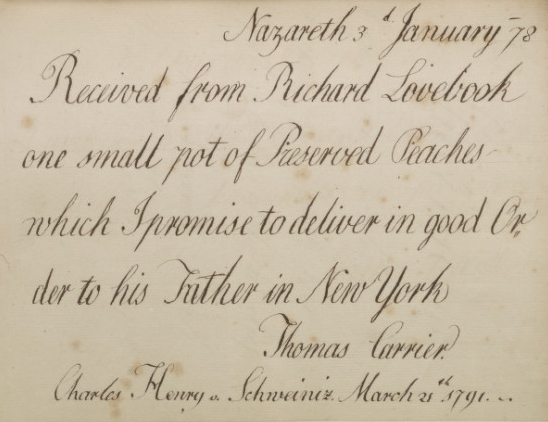 Nazareth 3d January - 78
Received from Richard Lovebook
one small pot of Preserved Peaches
which I promise to deliver in good Or,,
der to his Father in New York
Thomas Carrier.
Charles Henry v. Schweiniz. March 21st 1791...